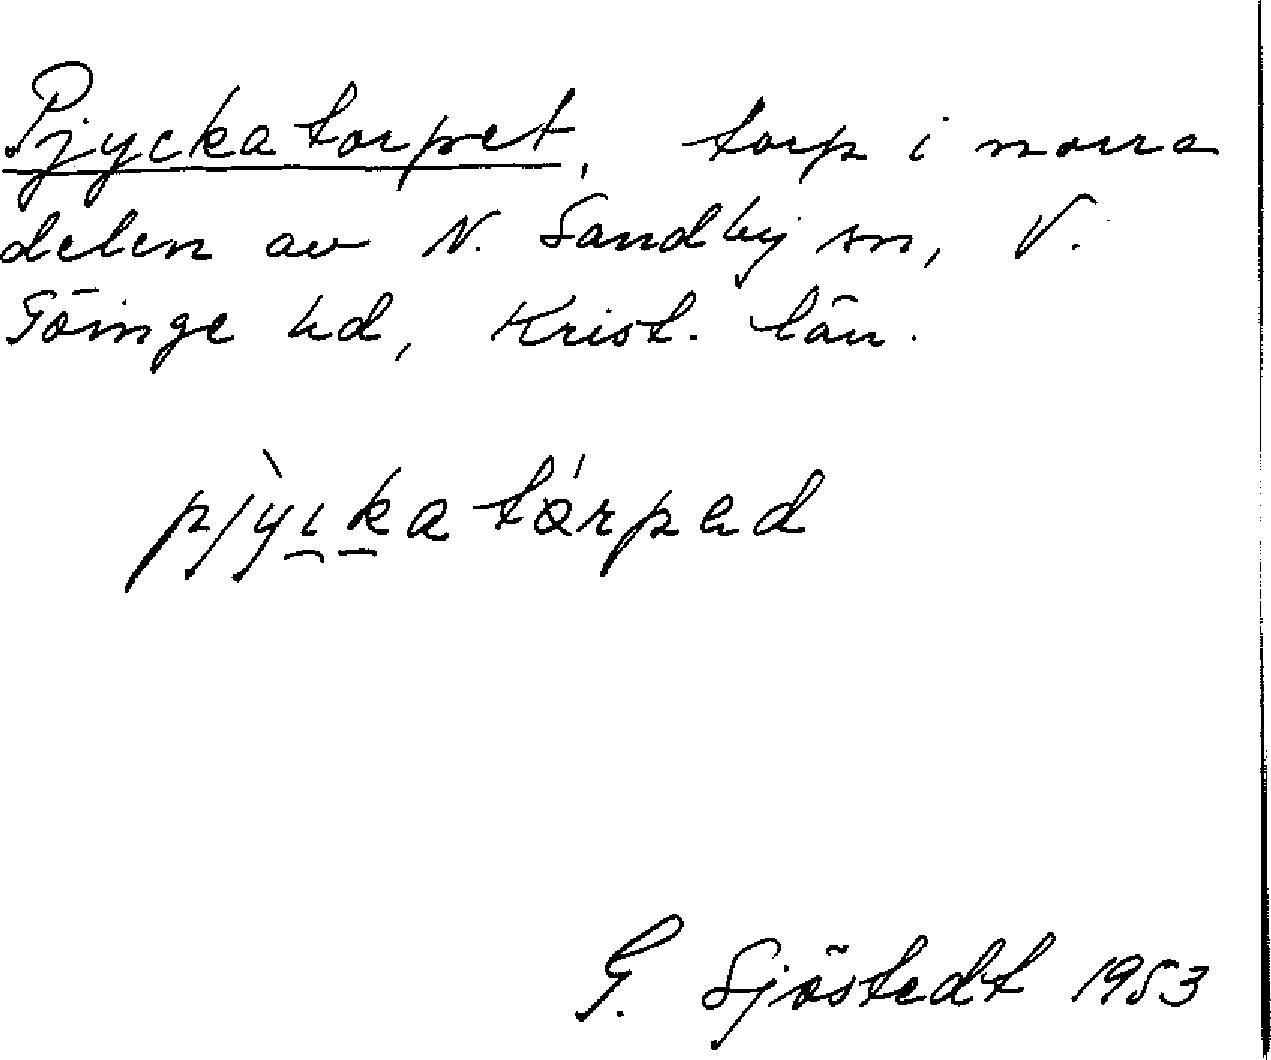 Pjyckatorpet, torp i norra
delen av N. Sandby sn, V.
Göinge hd, Krist. län.
pjỳıkatórpad
G. Sjöstedt 1953